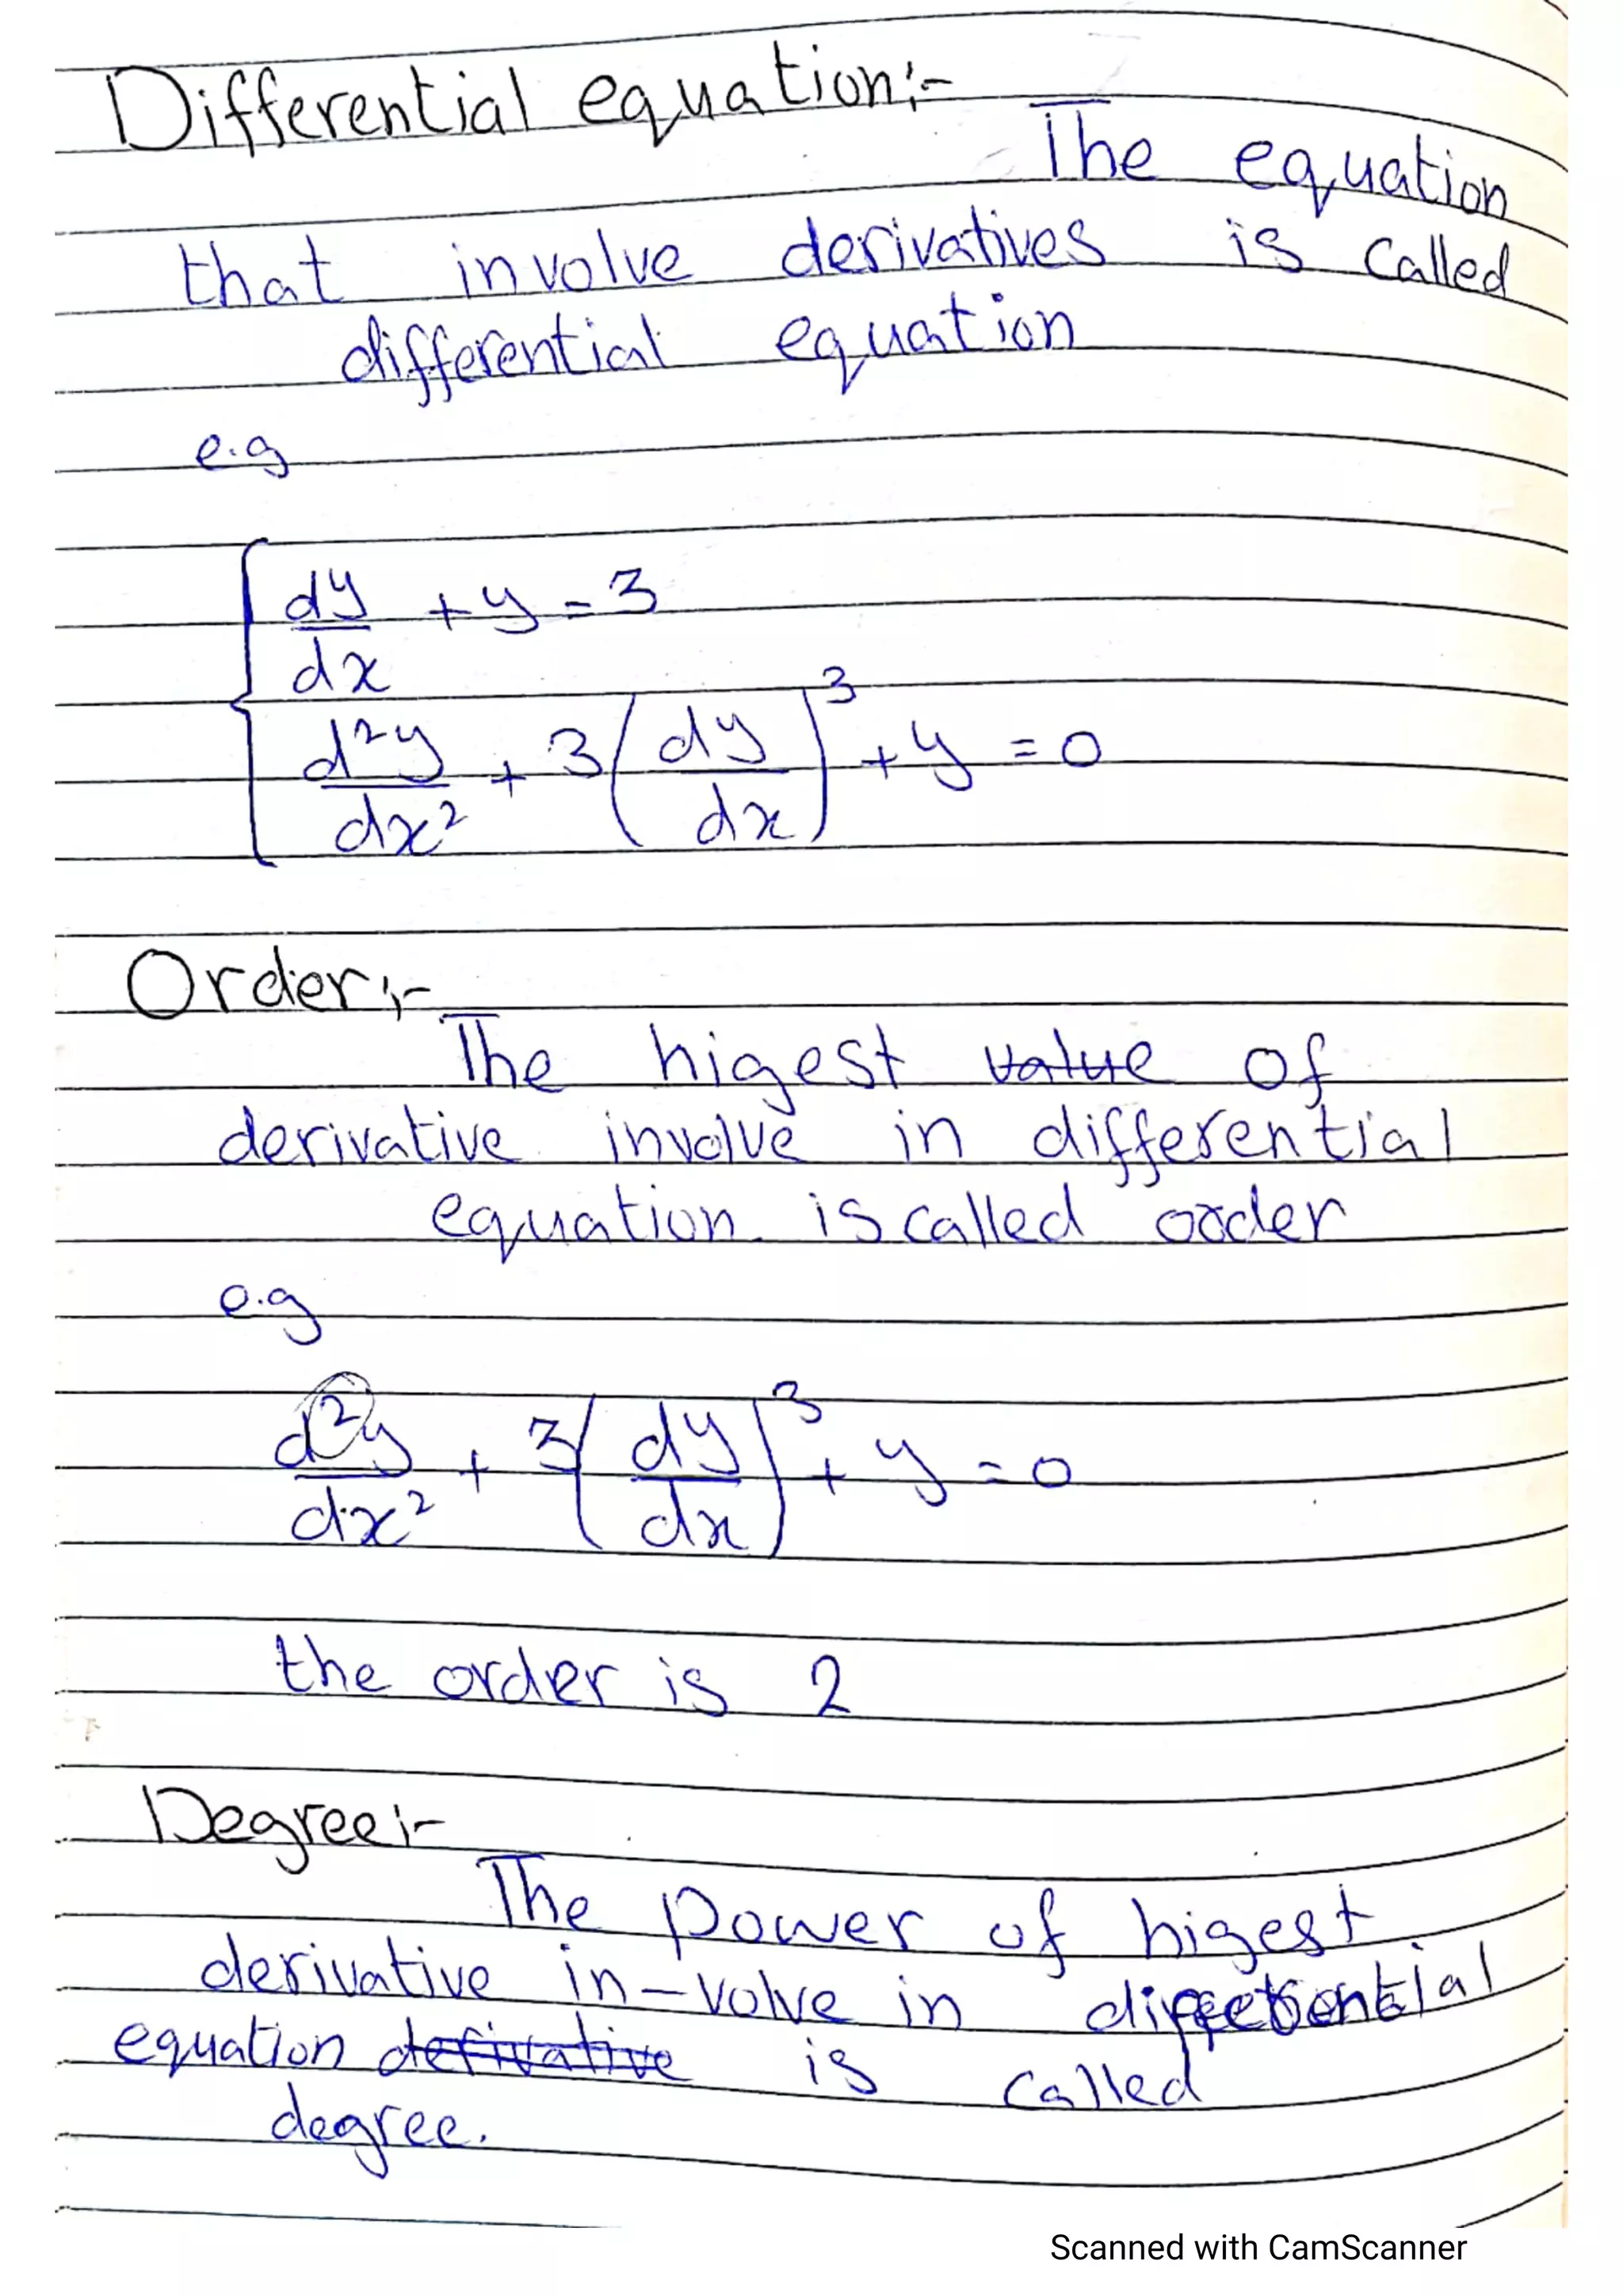 Differential equation:-
The equation
that involve derivatives is called
differential equation
e.g
dy/dx + y = 3
d²y/dx² + 3(dy/dx)³ + y = 0
Order:-
The higest value of
derivative involve in differential
equation is called order
e.g
d²y/dx² + 3(dy/dx)³ + y = 0
the order is 2
Degree:-
The power of higest
derivative in-volve in differential
equation derivative is called
degree.
Scanned with CamScanner